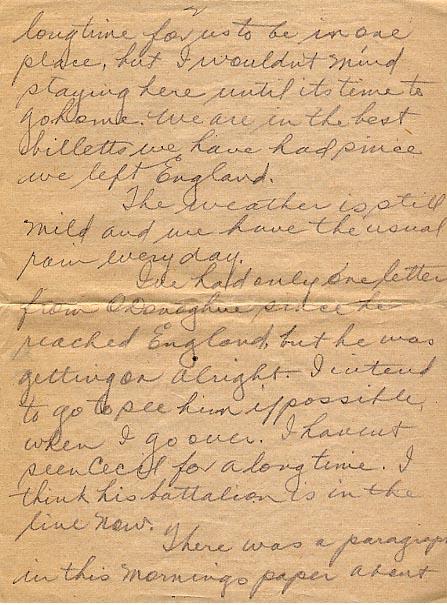 2
longtime for us to be in one
place, but I wouldn't mind
staying here until its time to
go home. We are in the best
billetts we have had since
we left England.
The weather is still
mild and we have the usual
rain every day.
I've had only one letter
from O'Donoghue since he
reached England, but he was
getting on alright. I intend
to go to see him if possible,
when I go over. I havent
seen Cecil for a long time. I
think his battalion is in the
line now.
There was a paragraph
in this mornings paper about